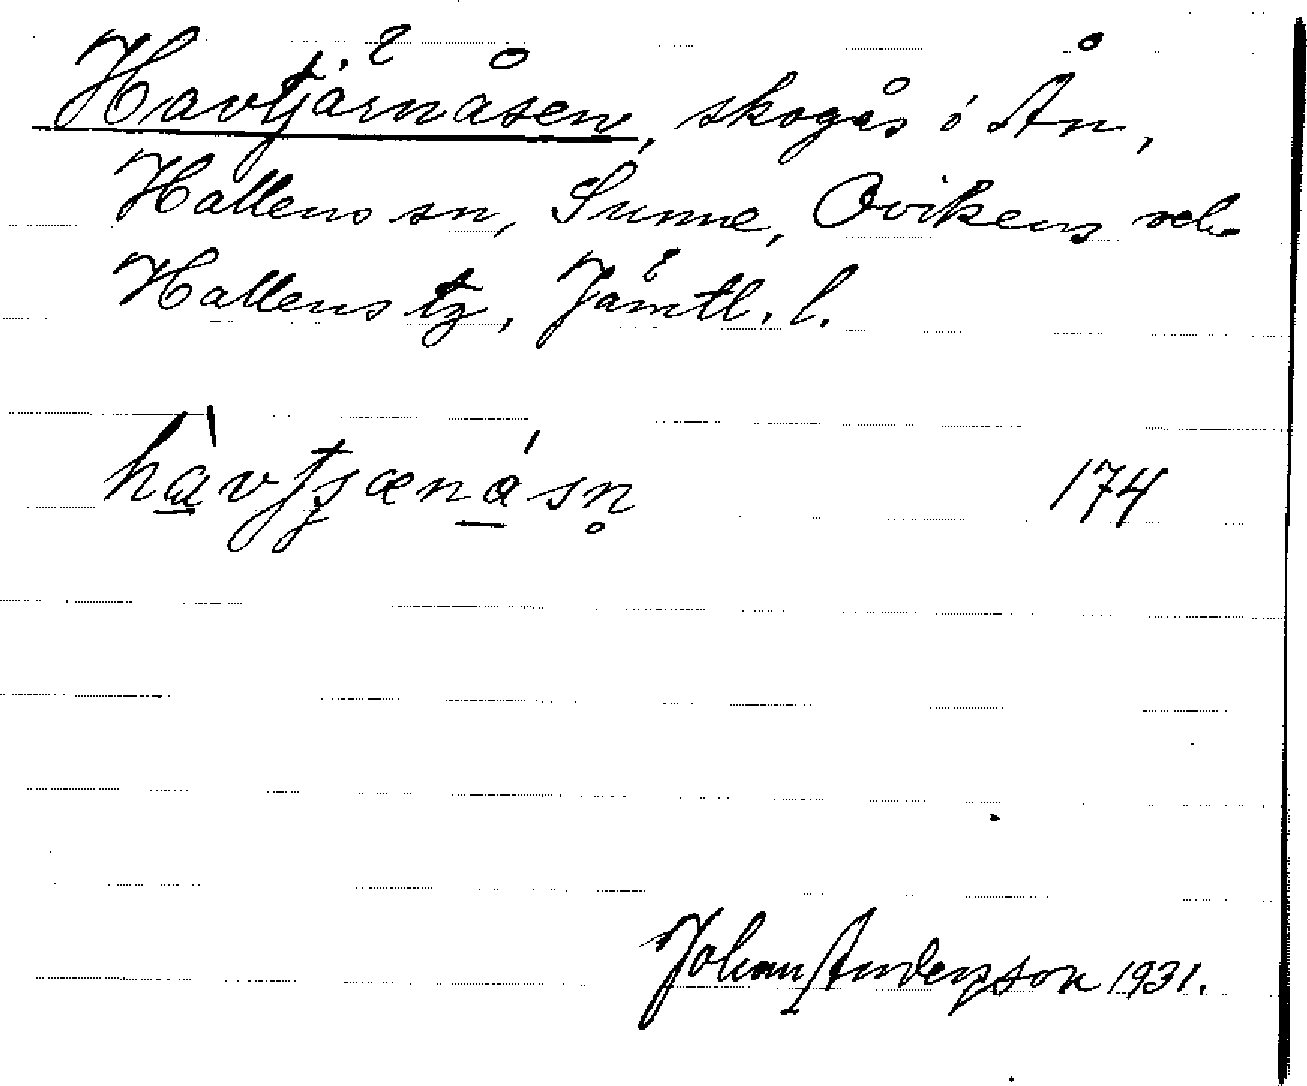 Havtjärnåsen, skogås i Ån,
Hallens sn, Sunne, Ovikens och
Hallens tg, Jämtl. l.
hàvtjænásn̥ 174
Johan Andersson 1931.